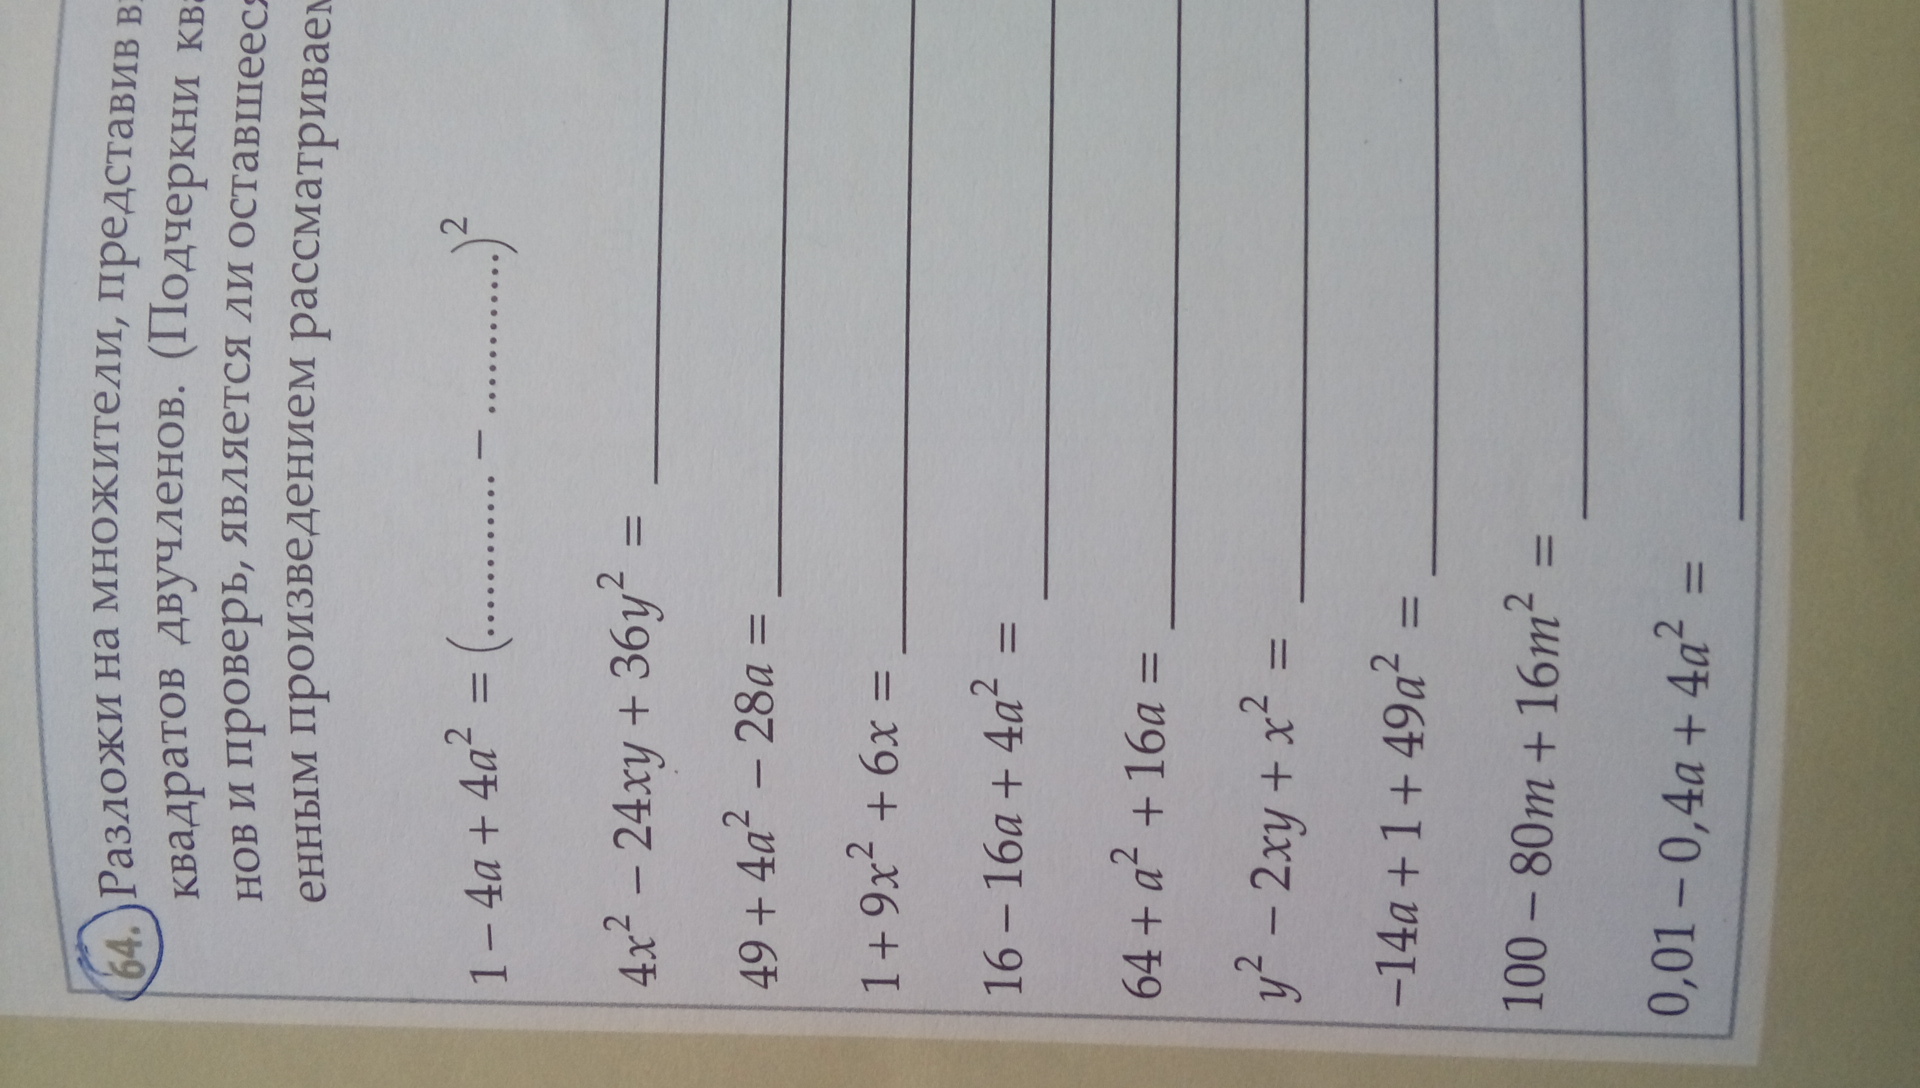 64. Разложи на множители, представив
квадратов двучленов. (Подчеркни
нов и проверь, является ли оставшееся
енным произведением рассматриваем
1 − 4a + 4a² = (............ − ............)²
4x² − 24xy + 36y² =
49 + 4a² − 28a =
1 + 9x² + 6x =
16 − 16a + 4a² =
64 + a² + 16a =
y² − 2xy + x² =
−14a + 1 + 49a² =
100 − 80m + 16m² =
0,01 − 0,4a + 4a² =